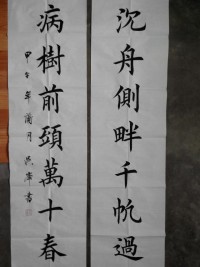 沉舟側畔千帆過
病樹前頭萬十春
甲午年蘭月